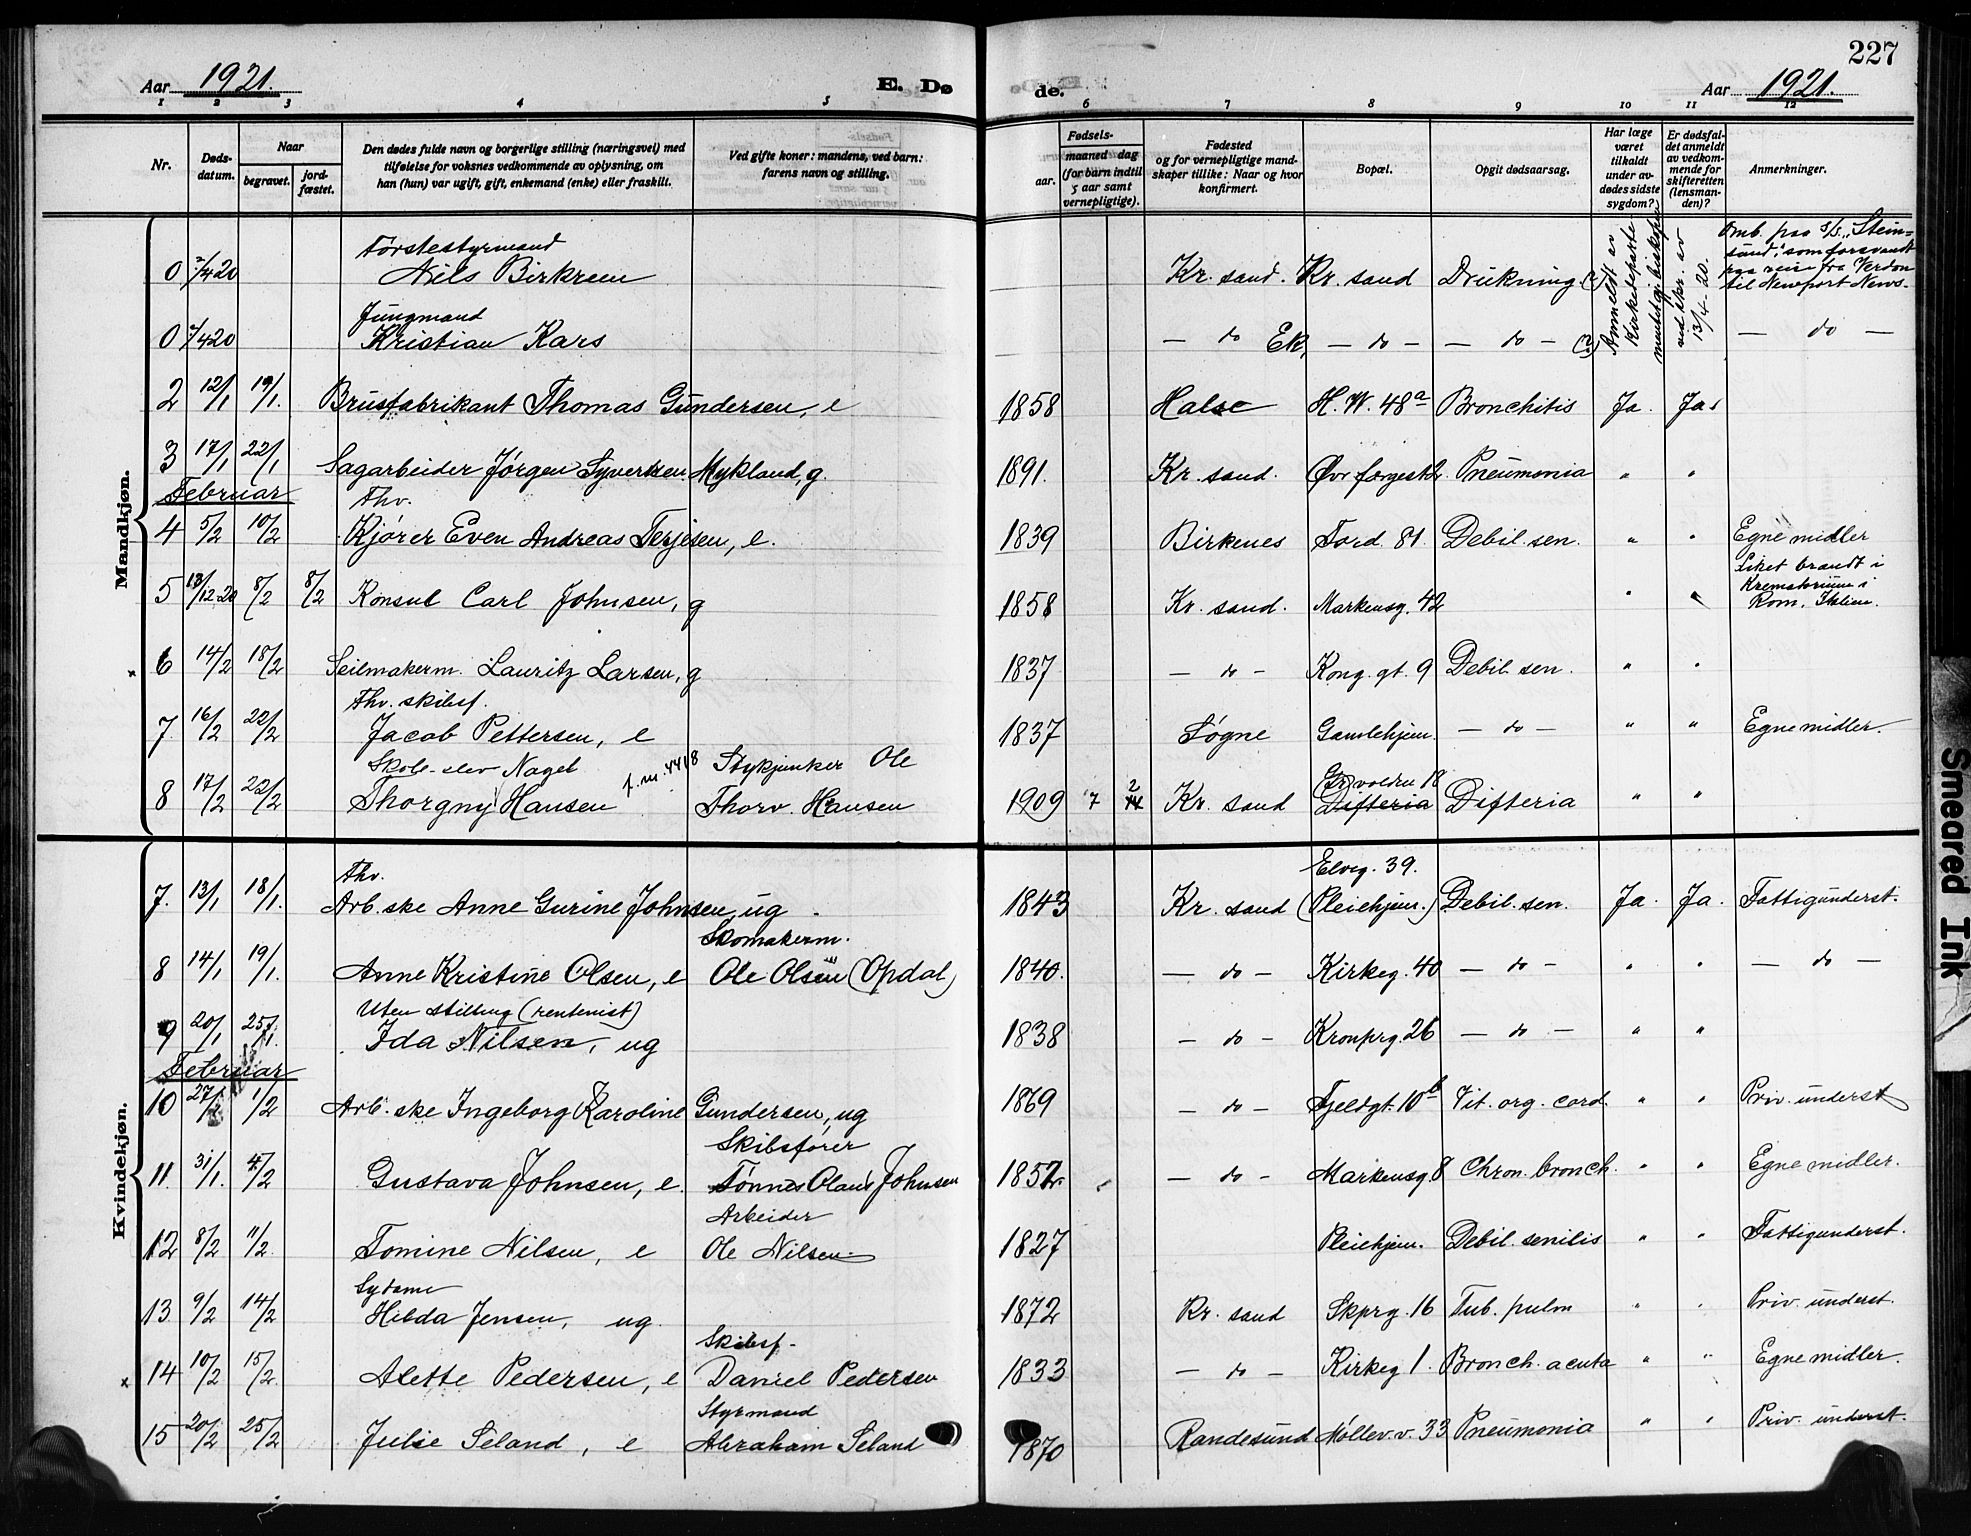 227
Aar 1921. E. Dø de. Aar 1921.
1 2 3 4 5 6 7 8 9 10 11 12
Nr. Døds-datum. Naar begravet. jord-fæstet. Den dødes fulde navn og borgerlige stilling (næringsvei) med tilføielse for voksnes vedkommende av oplysning, om han (hun) var ugift, gift, enkemand (enke) eller fraskilt. Ved gifte koner: mandens, ved barn: farens navn og stilling. Fødsels- aar. maaned dag (for barn indtil 5 aar samt vernepligtige). Fødested og for vernepligtige mandskaper tillike: Naar og hvor konfirmert. Bopæl. Opgit dødsaarsag. Har læge været tilkaldt under avdødes sidste sygdom? Er dødsfaldet anmeldt av vedkommende for skifteretten (lensmanden)? Anmerkninger.
Mandkjøn.
Førstestyrmand
0 2/4 20 Nils Birkrem Kr. sand. Kr. sand Drukning (?) Anmeldt av Kirkedeparte mentet gj. biskopen ved skr. av 13/4-20. Omb. paa S/S. „Steinsund", som forsvandt paa reise fra Verdon til Newport News.
Jungmand
0 2/4 20 Kristian Kars — do Ek, — do — — do — (?) — do —
2 12/1 19/1. Brusfabrikant Thomas Gundersen, e 1858 Halse H. W. 48a Bronchitis Ja. Ja.
3 17/1 22/1 Sagarbeider Jørgen Syvertsen Mykland, g. 1891. Kr. sand. Øvr forgest 2. Pneumonia " "
Februar
Fhv.
4 5/2 10/2 Kjører Even Andreas Terjesen, e. 1839 Birkenes Tord. 81. Debil. sen. " " Egne midler
5 13/12 20 8/2 8/2 Konsul Carl Johnsen, g 1858 Kr. sand. Markensg. 42 " " Liket brændt i Krematorium i Rom, Italien.
6 14/2 18/2 Seilmakerm. Lauritz Larsen, g 1837 — do — Kong. gt. 9 Debil. sen. " "
Fhv. skibsf.
7. 16/2 22/2 Jacob Pettersen, e 1837 Søgne Gamlehjem. — do — " " Egne midler.
Skole-elev Nagel f. nr. 4418 Stykjunker Ole
8 17/2 22/2 Thorgny Hansen Thorv. Hansen 1909 7 2 Kr. sand voldru 18 Difteria Difteria " "
Kvindekjøn.
Fhv. Elveg. 39.
7. 13/1 18/1. Arb.ske Anne Gurine Johnsen, ug. 1843 Kr. sand (Pleiehjem.) Debil. sen. Ja. Ja. Fattigunderst.
Skomakerm.
8 14/1 19/1. Anne Kristine Olsen, e Ole Olsen (Opdal) 1840. — do — Kirkeg. 40 — do — " " — do —
Uten stilling (rentenist)
9 20/1 25/1. Ida Nilsen, ug 1838 — do — Kronprg. 26 — do — " "
Februar
10 27/1 1/2 Arb.ske Ingeborg Karoline Gundersen, ug 1869 — do — Fjeldgt. 10b Vit. org. cord. " " Priv. underst
Skibsfører
11. 31/1. 4/2 Gustava Johnsen, e. Tønnes Olaus Johnsen 1852. — do — Markensg. 8 Chron. bronch. " " Egne midler.
Arbeider
12 8/2 11/2. Tomine Nilsen, e Ole Nilsen 1827 Pleiehjem. Debil. senilis " " Fattigunderst.
Sydame
13. 9/2 14/2 Hilda Jensen, ug. 1872 Kr. sand Skprg. 16 Tub. pulm " " Priv. underst.
Skibsf.
14 10/2 15/2. Alette Pedersen, e Daniel Pedersen 1833 — do — Kirkeg 1. Bronch. acuta " " Egne midler.
Styrmand
15 20/2 25/2 Julie Seland, e Abraham Seland 1870 Randesund Møllev. v. 33 Pneumonia " " Priv. underst.
Smeared Ink